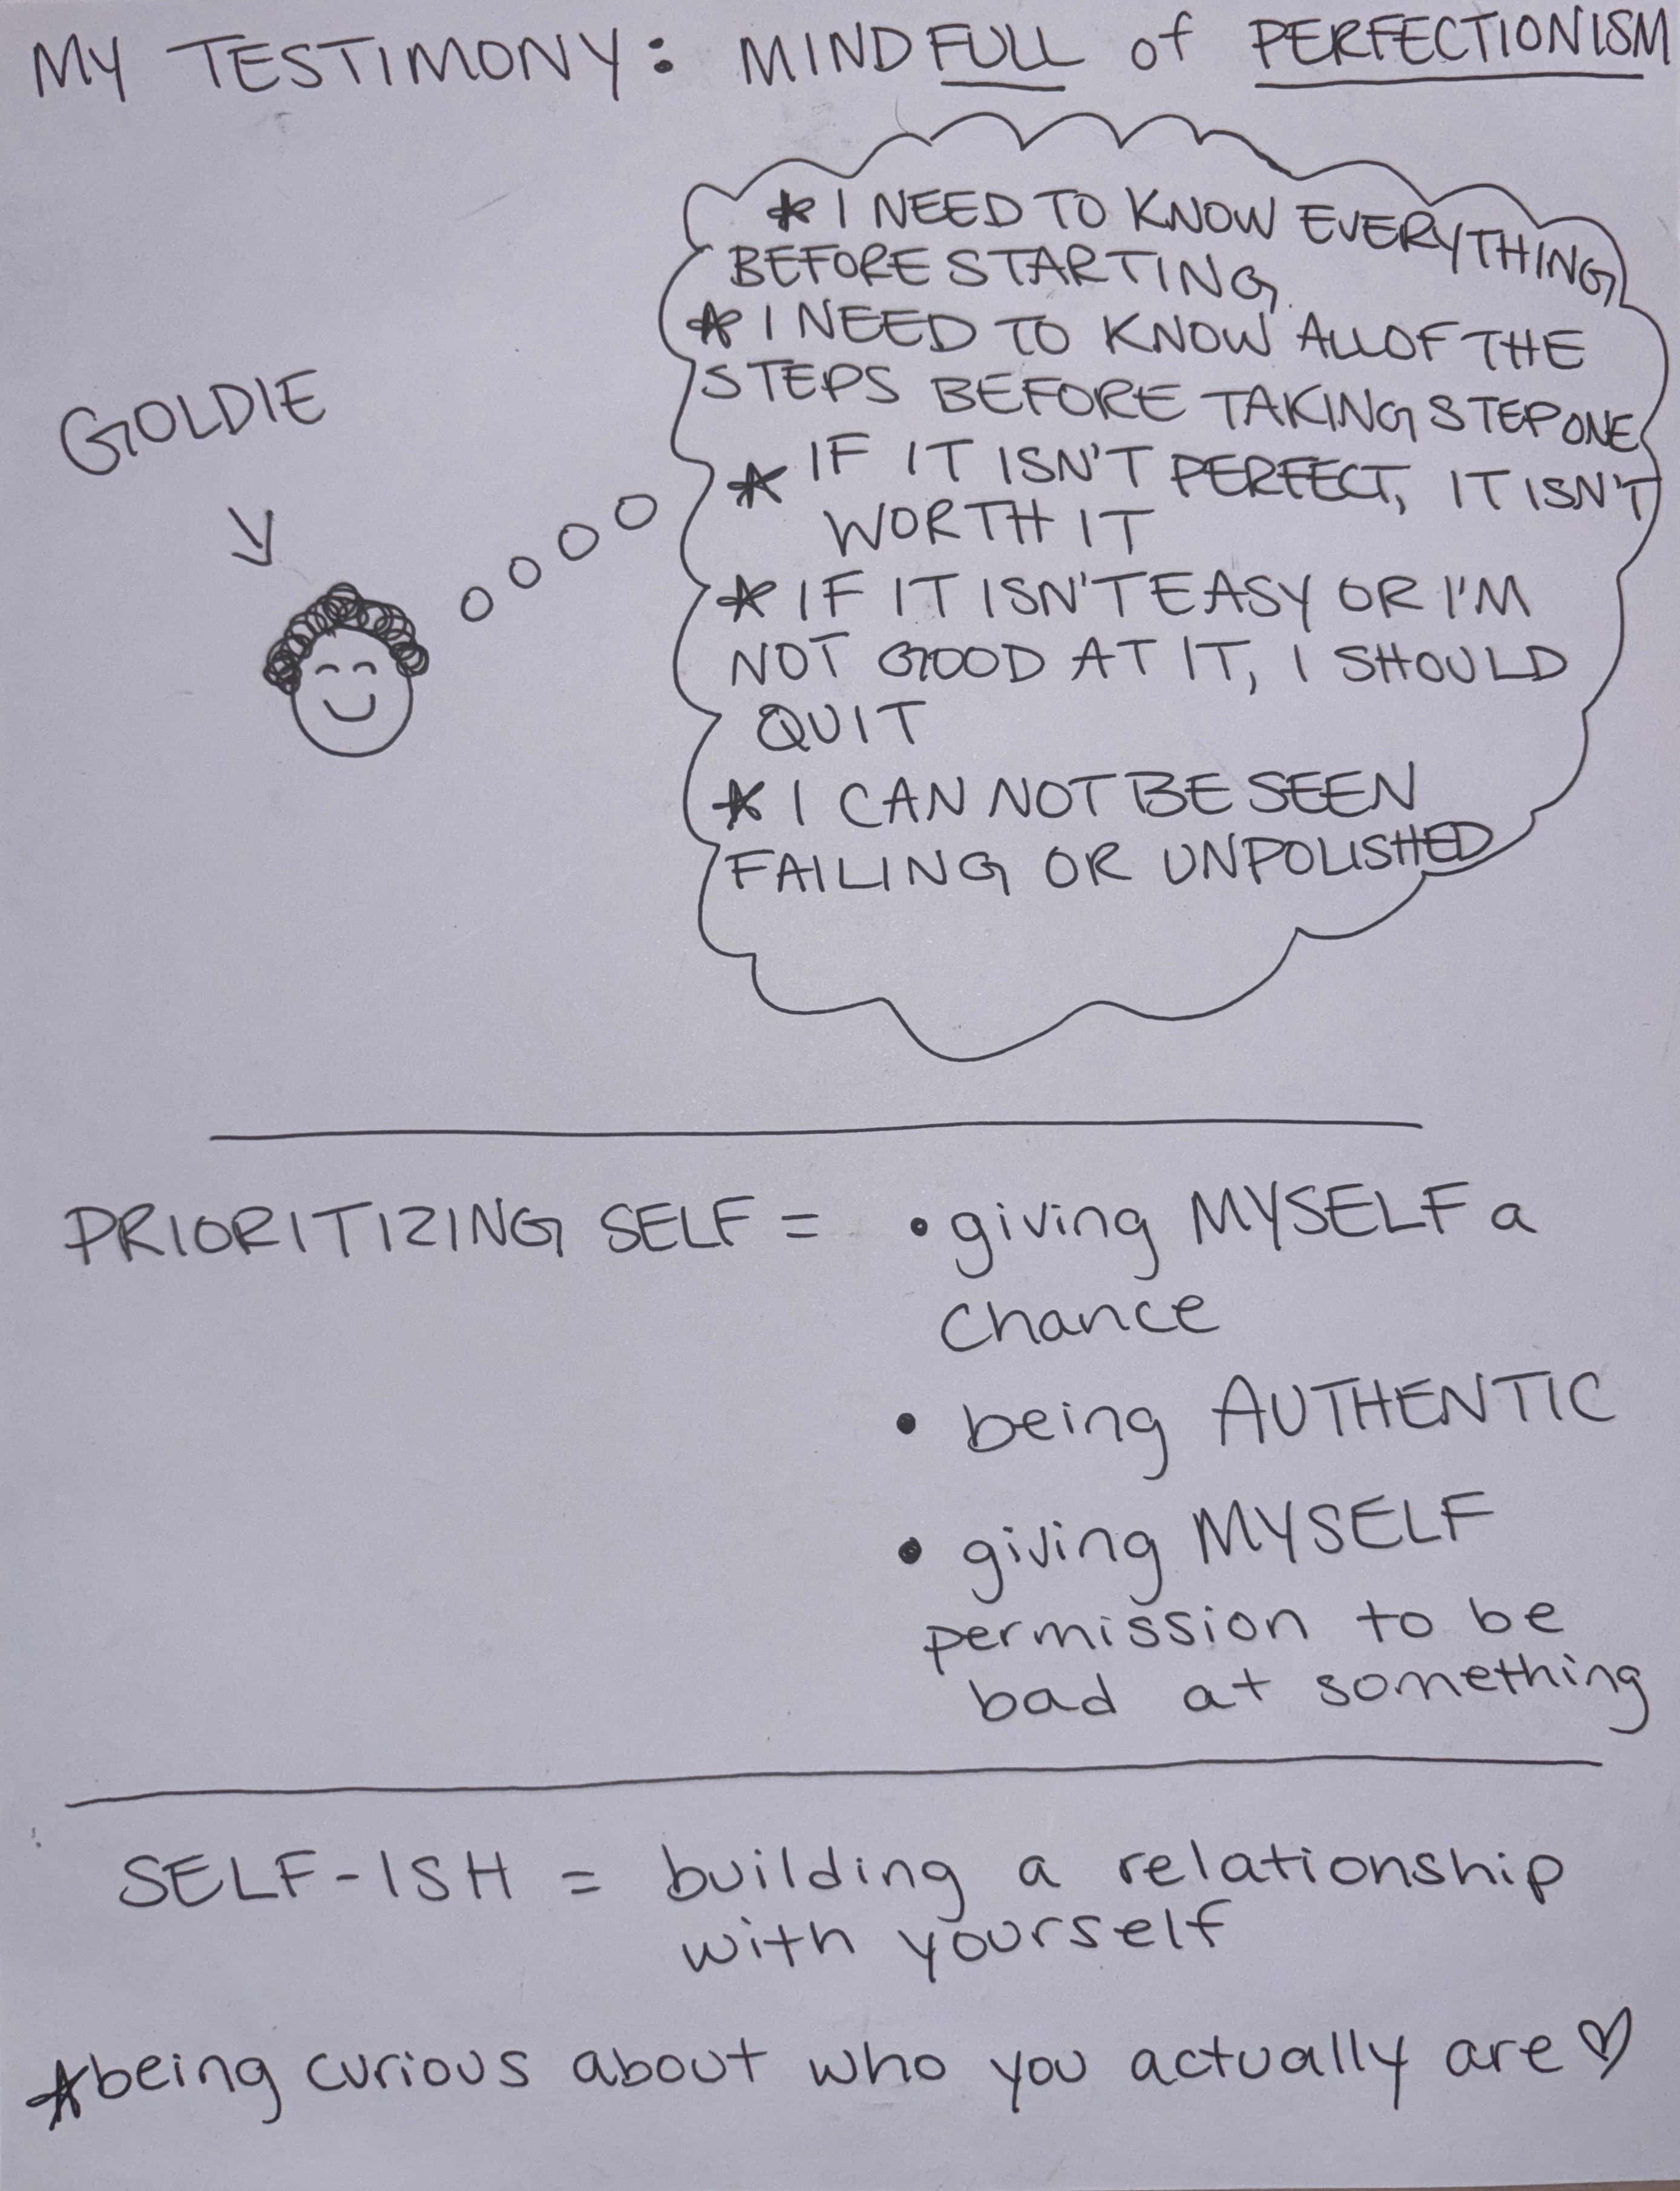 MY TESTIMONY: MINDFULL of PERFECTIONISM
* I NEED TO KNOW EVERYTHING
BEFORE STARTING.
* I NEED TO KNOW ALL OF THE
STEPS BEFORE TAKING STEP ONE
* IF IT ISN'T PERFECT, IT ISN'T
WORTH IT
* IF IT ISN'T EASY OR I'M
NOT GOOD AT IT, I SHOULD
QUIT
* I CAN NOT BE SEEN
FAILING OR UNPOLISHED
GOLDIE
PRIORITIZING SELF = • giving MYSELF a
chance
• being AUTHENTIC
• giving MYSELF
permission to be
bad at something
SELF-ISH = building a relationship
with yourself
*being curious about who you actually are ♡